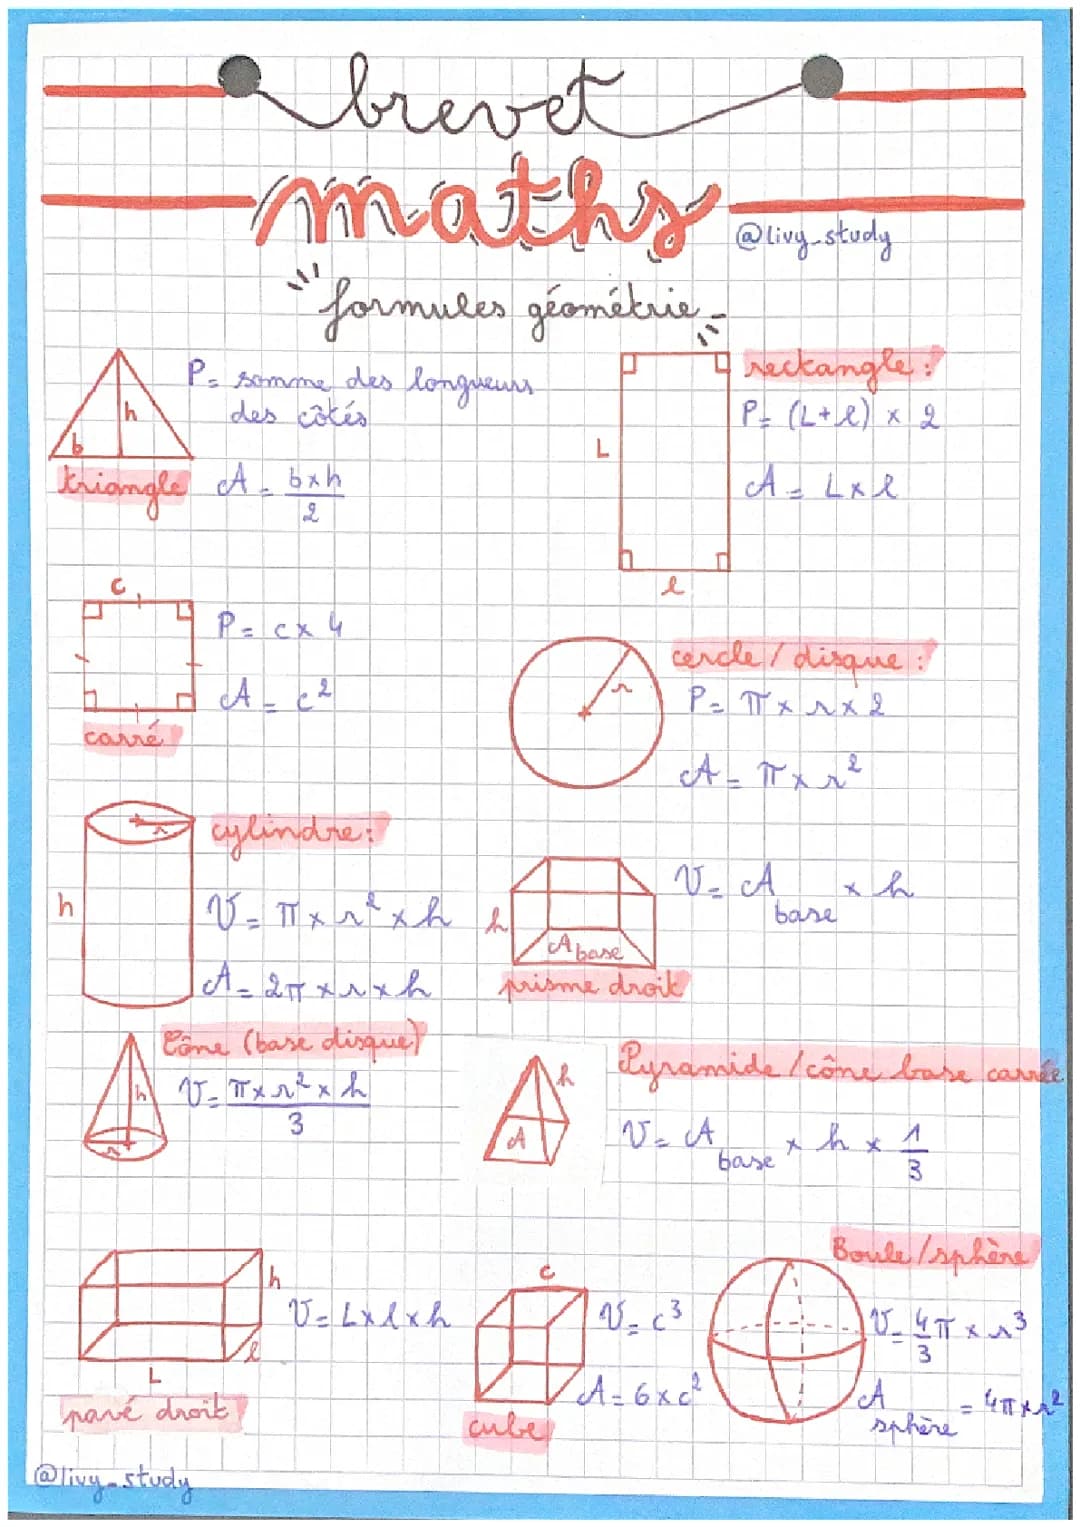 brevet
maths
@livy_study
formules géométrie
h
b
triangle
P= somme des longueurs
des côtés
A = b×h
2
L
l
rectangle :
P= (L+l) × 2
A = L×l
c
carré
P= c× 4
A = c²
r
cercle / disque :
P= π× r×2
A = π×r²
r
h
cylindre :
V= π×r²×h
A= 2π×r×h
h
A base
prisme droit
V= A base × h
h
r
Cône (base disque)
V= π×r²×h
3
h
A
Pyramide / cône base carrée
V= A base × h × 1
3
h
l
L
pavé droit
V= L×l×h
c
cube
V= c³
A= 6×c²
Boule / sphère
V= 4π × r³
3
A sphère = 4π×r²
@livy_study